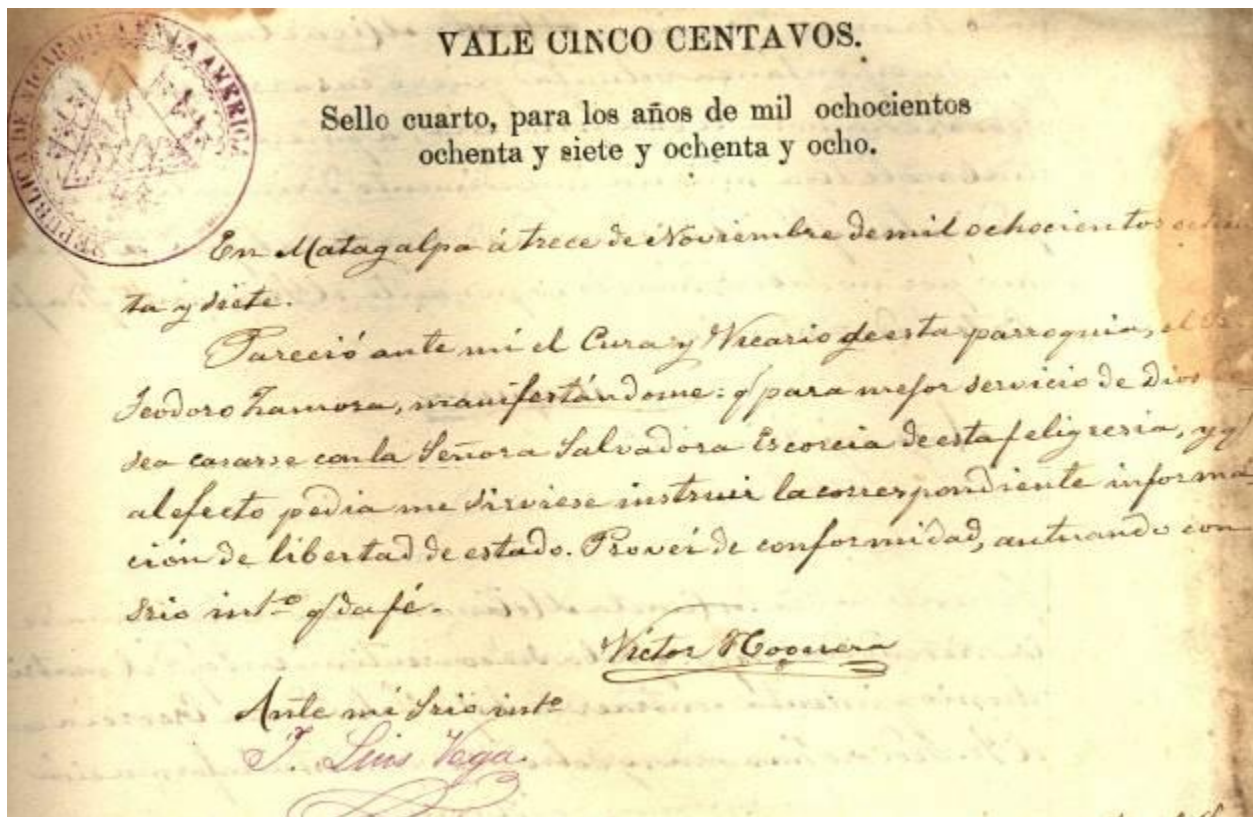 REPUBLICA DE NICARAGUA EN LA AMERICA
VALE CINCO CENTAVOS.
Sello cuarto, para los años de mil ochocientos
ochenta y siete y ochenta y ocho.
En Matagalpa á trece de Noviembre de mil ochocientos ochen
ta y siete.
Pareció ante mi el Cura y Vicario de esta parroquia, el Sr.
Teodoro Zamora, manifestándome: q para mejor servicio de Dios
sea casarse con la Señora Salvadora Escorcia de esta feligresia, y q
al efecto pedia me sirviese instruir la correspondiente informa
ción de libertad de estado. Proveí de conformidad, actuando con
srio intº q da fé.
Victor Noguera
Ante mi Srio intº
J. Luis Vega.